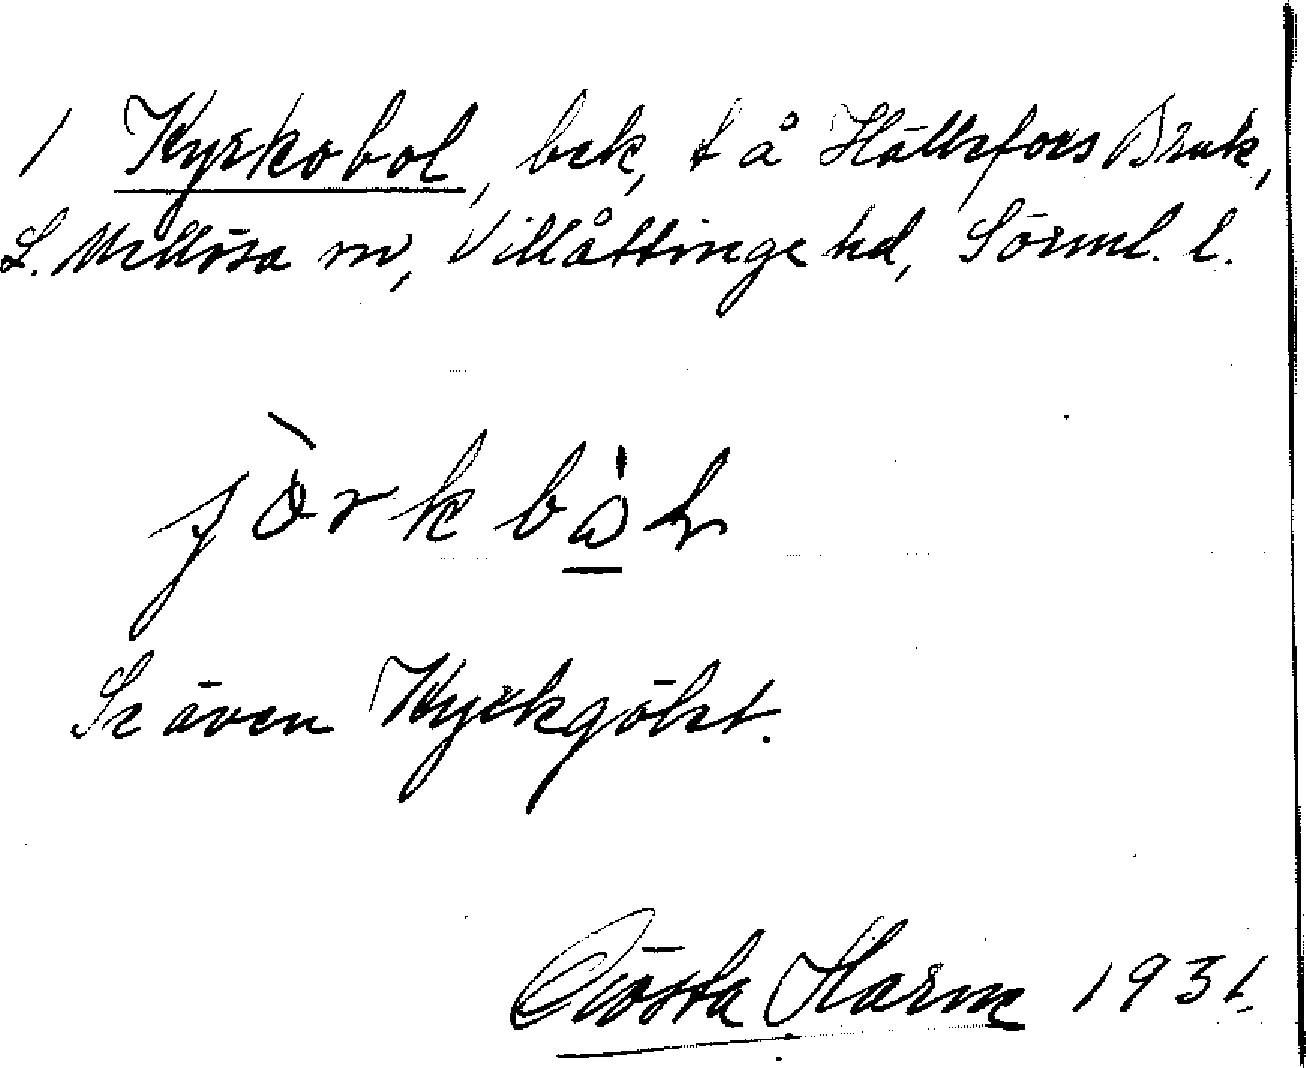 1 Kyrkobol, bek, t å Hällefors Bruk,
L. Mellösa sn, Villåttinge hd, Sörml. l.
Se även Kyrkgölet.
Gösta Harne 1931.